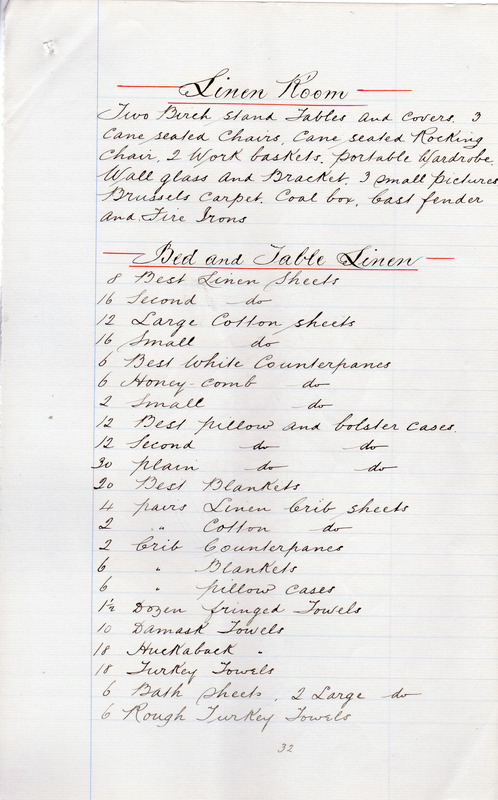 Linen Room
Two Birch stand Tables and Covers, 3
Cane seated Chairs, Cane seated Rocking
Chair, 2 Work baskets, portable Wardrobe,
Wall glass and Bracket, 3 small pictures
Brussels Carpet, Coal box, Cast fender
and Fire Irons
Bed and Table Linen
8 Best Linen Sheets
16 Second do
12 Large Cotton sheets
16 Small do
6 Best White Counterpanes
6 Honey-comb do
2 Small do
12 Best pillow and bolster cases.
12 Second do do
30 plain do do
20 Best Blankets
4 pairs Linen Crib sheets
2 " Cotton do
2 Crib Counterpanes
6 " Blankets
6 " pillow cases
1½ Dozen fringed Towels
10 Damask Towels
18 Huckaback "
18 Turkey Towels
6 Bath sheets, 2 Large do
6 Rough Turkey Towels
32